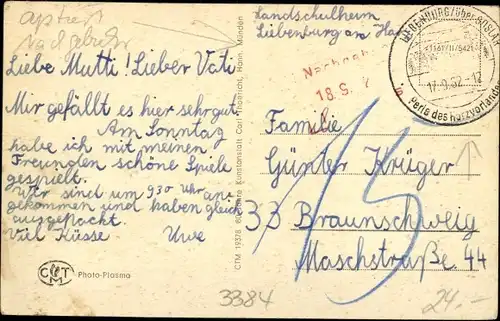 Landschulheim
Liebenburg am Har
LIEBENBURG/über GOSLAR
17.9.62.-12
Perle des Harzvorlandes
Nachgeb
18. 9.
Liebe Mutti! Lieber Vati
Mir gefällt es hier sehr gut.
Am Sonntag
habe ich mit meinen
Freunden schöne Spiele
gespielt.
Wir sind um 930 Uhr an=
gekommen und haben gleich
ausgepackt.
Viel Küsse Uwe
CTM Photo-Plasma
Familie
Günter Krüger
33 Braunschweig
Maschstraße 44
15
3384
24.-